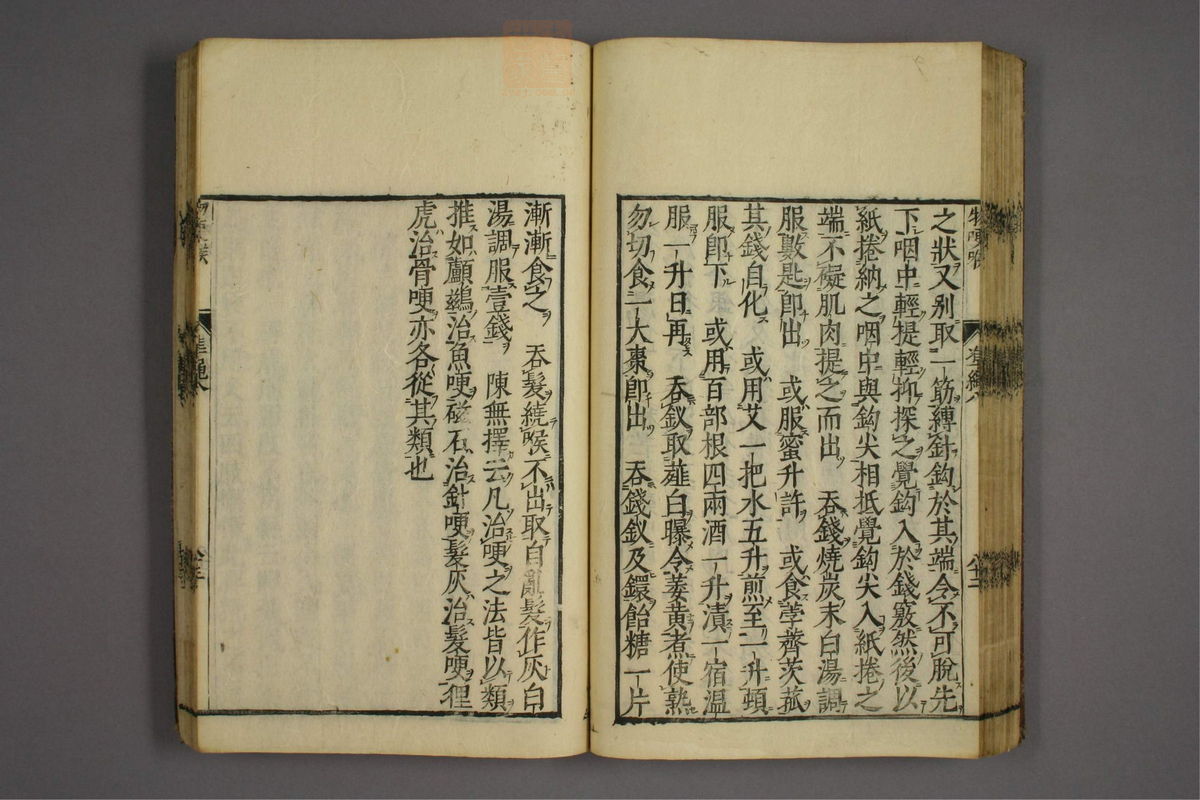 之狀又别取一筋縛針鈎於其端令不可脫先
下咽中輕提輕抑探之覺鈎入於錢竅然後以
紙捲納之咽中與鈎尖相抵覺鈎尖入紙捲之
端不礙肌肉提之而出　吞錢燒炭末白湯調
服數匙即出　或服蜜升許　或食荸薺茨菰
其錢自化　或用艾一把水五升煎至一升頓
服卽下　或用百部根四兩酒一升漬一宿溫
服一升日再　吞釵取薤白曝令萎黃煮使熟
勿切食一大棗卽出　吞錢釵及鐶飴糖一片
漸漸食之　吞髮繞喉不出取自亂髮作灰白
湯調服壹錢　陳無擇云凡治哽之法皆以類
推如鸕鷀治魚哽磁石治針哽髮灰治髮哽狸
虎治骨哽亦各從其類也